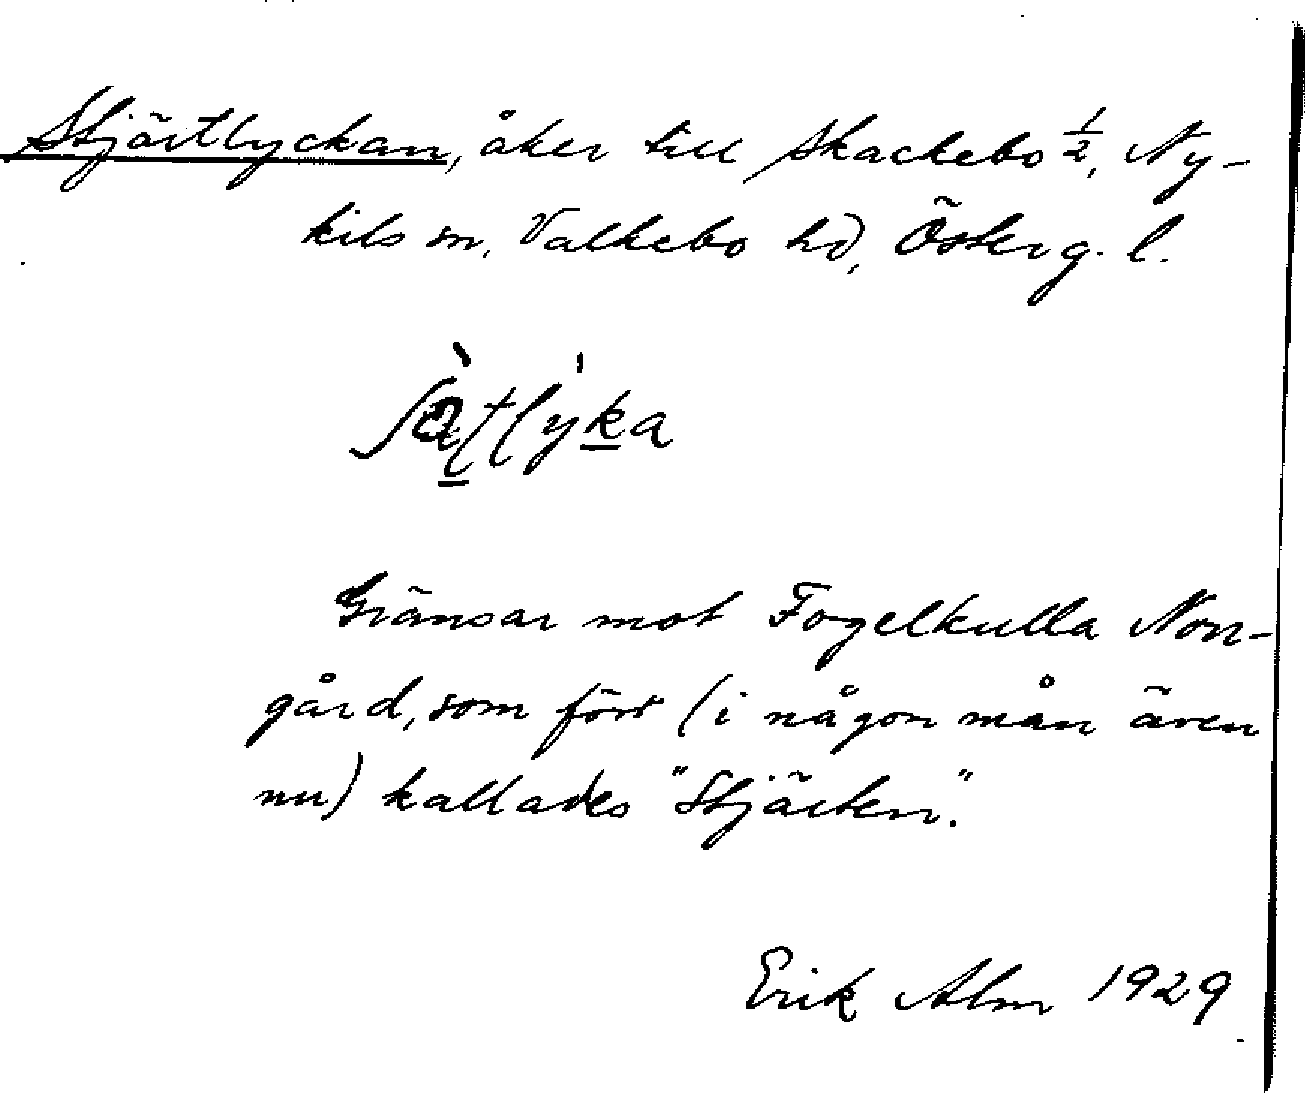 Stjärtlyckan, åker till Skackebo ½, Ny-
kils sn, Valkebo hd, Österg. l.
Gränsar mot Fogelkulla Norr-
gård, som förr (i någon mån även
nu) kallades "Stjärten".
Erik Alm 1929